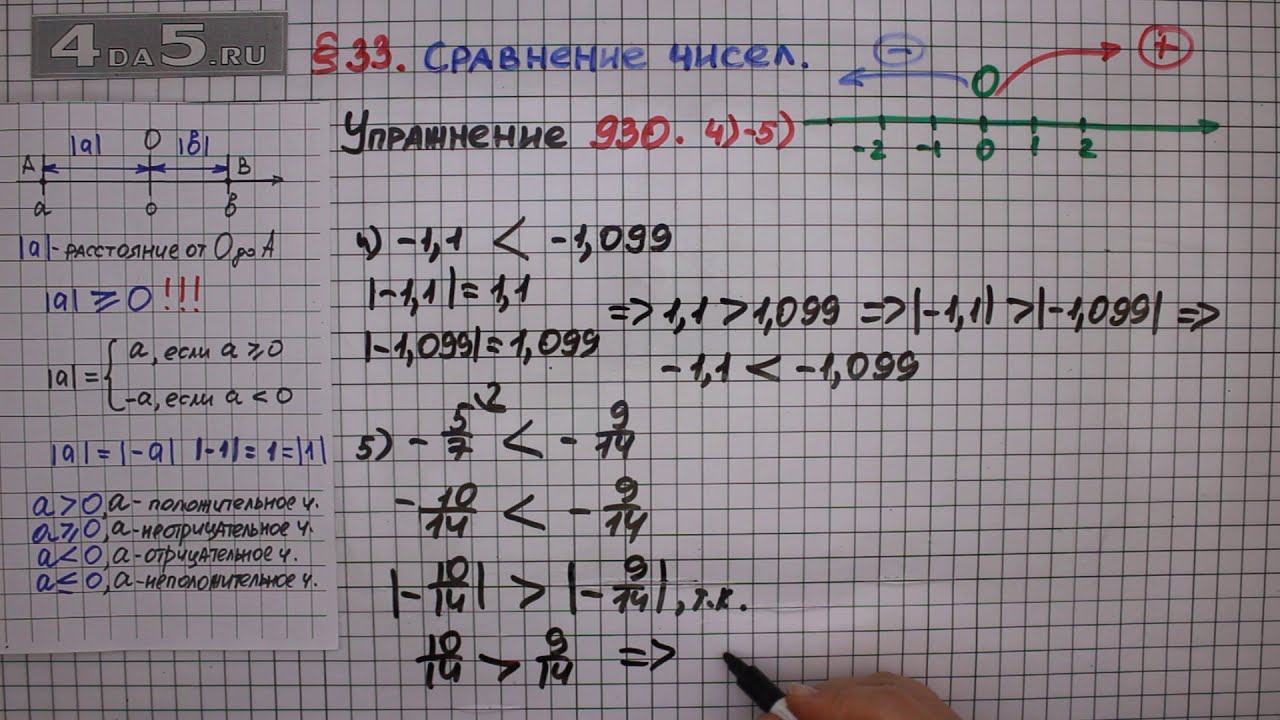 4DA5.RU
§33. Сравнение чисел.
− 0 +
Упражнение 930. 4)-5)
-2 -1 0 1 2
|a| 0 |в|
A B
a 0 в
|a|-расстояние от 0 до A
|a| ⩾ 0 !!!
|a| = { a, если a ⩾ 0
-a, если a < 0
|a| = |-a| |-1| = 1 = |1|
a > 0, a - положительное ч.
a ⩾ 0, a - неотрицательное ч.
a < 0, a - отрицательное ч.
a ≤ 0, a - неположительное ч.
4) -1,1 < -1,099
|-1,1| = 1,1
|-1,099| = 1,099
=> 1,1 > 1,099 => |-1,1| > |-1,099| =>
-1,1 < -1,099
5) - 5/7 2 < - 9/14
- 10/14 < - 9/14
|- 10/14| > |- 9/14|, т.к.
10/14 > 9/14 =>